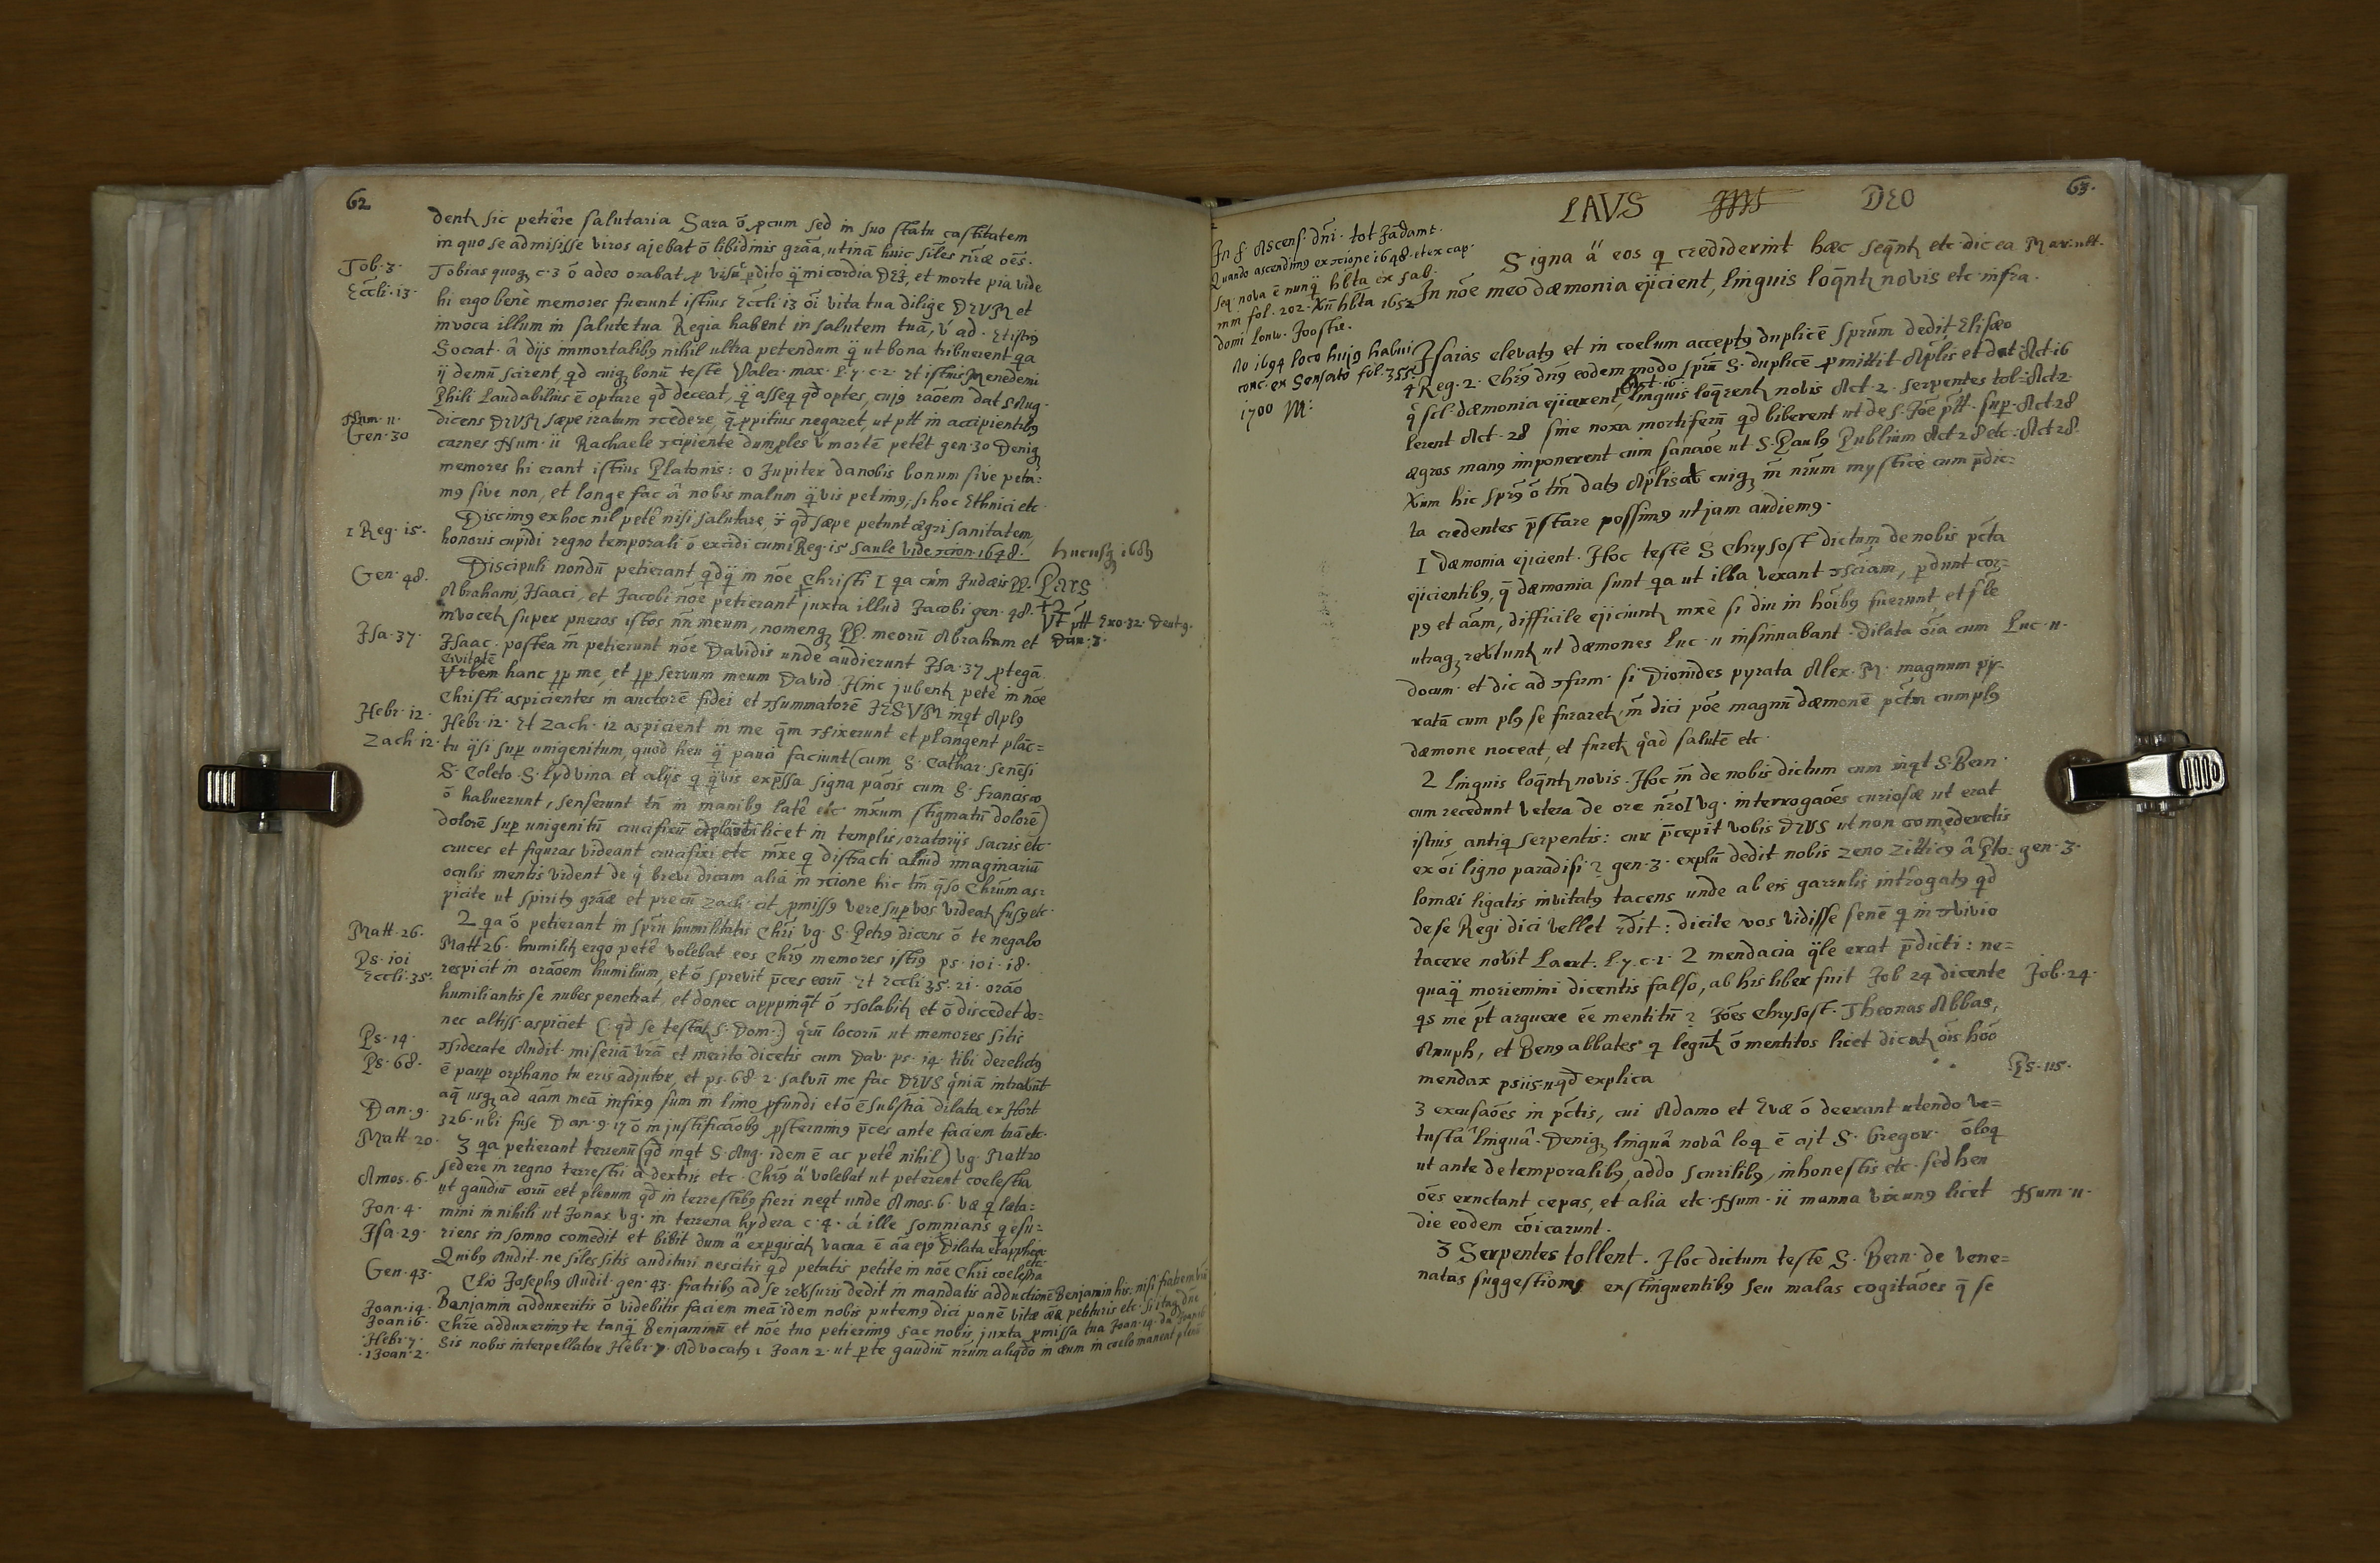 62
dent sic petiêre salutaria Sara ō pcum sed in suo statu castitatem
in quo se admisisse viros ajebat ō libidinis grãa, utinã huic siles nr̃æ oẽs.
Tob. 3. Tobias quoq c. 3 ō adeo orabat p visu pdito q̃ micordia DEI, et morte pia vide
Eccli. 13 hi ergo benè memores fuerunt istius Eccli. 13 oĩ vita tua dilige DEUM et
invoca illum in salute tua Regia habent in salutem tuã, v ad. Et istiq
Socrat. â dijs immortalibq nihil ultra petendum q̃ ut bona tribuerent qa
ij demũ scirent, qd cuiq bonũ teste Valer. max. l. 7. c. 2. et istius Menedemi
Phili Laudabilius ē optare qd deceat, q̃ asseq qd optes, cujq raõem dat S Aug.
Num. 11. dicens DEUM sæpe iratum ↄcedere, q̃ ppitius negaret, ut ptt in accipientibq
Gen. 30 carnes Num. 11 Rachaele ↄcipiente dum ples v mortẽ petêt gen. 30 Deniq
memores hi erant istius Platonis: o Jupiter da nobis bonum sive peta:
mq sive non, et longe fac â nobis malum q̃vis petimq, si hoc Ethnici etc.
Discimq ex hoc nil petê nisi salutare, v qd sæpe petunt ægri sanitatem,
1 Reg. 15. honoris cupidi regno temporali ō excidi cum 1 Reg. 15 Saule vide ↄcion. 1648.
hucusq 1689
Discipuli nondũ petierant qdq̃ in nõe Christi I qa cũm Judæis PP. Pars
Gen. 48. Abrahami, Isaaci, et Jacobi nõe petierant juxta illud Jacobi gen. 48.
invocet super pueros istos nñ meum, nomenq PP. meorũ Abraham et Ut ptt Exo. 32. Deut. 9. Dan. 3
Isa. 37 Isaac. postea m̃ petierunt nõe Davidis unde audierunt Isa. 37 ptegã
Civitatẽ
Urbem hanc pp me, et pp servum meum David. Hinc jubent petê in nõe
Christi aspicientes in auctorẽ fidei et ↄsummatorẽ JESUM inqt Aplq
Hebr. 12. Hebr. 12. Et Zach. 12 aspicient in me q̃m ↄfixerunt et plangent plãc=
Zach 12. tu q̃si sup unigenitum, quod heu q̃ pauci faciunt (cum S. Cathar. Senẽsi
S. Coleto. S. Lydvina et alijs q q̃vis expssa signa paõis cum S. Francisco
ō habuerunt, senserunt tñ in manibq latê etc mxum stigmatũ dolorẽ)
dolorẽ sup unigenitũ crucifixũ licet in templis, oratorijs sacris etc
cruces et figuras videant crucifixi etc mxe q distracti aliud imaginariũ
oculis mentis vident de q brevi dicam alia in ↄcione hic tm̃ q̃so Chr̃um as:
picite ut spiritq grãæ et precũ Zach. cit pmissq vere sup vos videat fusq etc.
2 qa ō petierant in spr̃u humilitatis Chr̃i vg. S. Petrq dicens ō te negabo
Matt. 26. Matt 26. humilit ergo petê volebat eos Chr̃q memores istiq ps. 101. 18.
Ps. 101 respicit in orãoem humilium, et ō sprevit pces eorũ. Et Eccli 35. 21. orão
Eccli. 35. humiliantis se nubes penetrat, et donec apppinqt ō ↄsolabit et ō discedet do:
nec altiss. aspiciet (. qd se testat S. Dom.) qrũ locorũ ut memores sitis
Ps. 14. ↄsiderate Audit. miseriã vr̃ã et merito dicetis cum Dav. ps. 14. tibi derelictq
Ps. 68. ē paup orphano tu eris adjutor, et ps. 68. 2. salvũ me fac DEUS qniã intravũt
aq̃ usq ad aãm meã infixq sum in limo pfundi et ō ē substia dilata ex Hort
Dan. 9. 326. ubi fuse Dan. 9. 17 ō in justificãobq psternimq pces ante faciem tuã etc.
Matt. 20. 3 qa petierant terrenũ (qd inqt S. Aug. idem ē ac petê nihil) vg. Matt 20
sedere in regno terrestri â dextris etc. Chr̃q ä volebat ut peterent coelestia
Amos. 6. ut gaudiũ eorũ eēt plenum qd in terrestibq fieri neqt unde Amos. 6. væ q læta:
Jon. 4. mini in nihili ut Jonas vg. in terrena hydera c. 4. á ille somnians q esu:
Isa. 29. riens in somno comedit et bibit dum ä expgiscit vacua ē aã ejq Dilata et applica
Quibq Audit. ne siles sitis audituri nescitis qd petatis petite in nõe Chr̃i coelestia etc
Gen. 43. Clio Josephq Audit. gen. 43. fratribq ad se reversuris dedit in mandatis adductionẽ Benjamin his: nisi fratrem vr̃ũ
Joan. 14. Benjamin adduxeritis ō videbitis faciem meã idem nobis putemq dici panẽ vitæ ææ petituris etc. Si itaq dñe
Joan 16. Chr̃e adduxerimq te tanq̃ Benjaminũ et nõe tuo petierimq fac nobis juxta pmissa tua Joan. 14. da
Hebr. 7. 1 Joan. 2. Sis nobis interpellator Hebr. 7. Advocatq 1 Joan 2. ut p te gaudiũ nr̃um aliqdo in æum in coelo maneat plenũ
63.
LAVS DEO
In f. Ascens. dñi. tot Jadamt.
Quando ascendimq ex ↄcione 1648. et ex cap.
seq. nova ē nunq̃ hbta ex sab.
mei fol. 202. Xñ hbta 1652
domi Lonw. Joostre.
Ao 1694 loco hujq habui
conc. ex Senserto fol. 355.
1700 M:
Signa ä eos q crediderint hæc seqnt etc dic ea Mar. ult.
In nõe meo dæmonia ejicient, linguis loqnt novis etc. infra.
Isaias elevatq et in coelum acceptq duplicẽ spr̃um dedit Elisæo
4 Reg. 2. Chr̃q dñq eodem modo spr̃u S. duplicẽ pmittit Aplis et dat Act. 16
Act. 16.
q scl. dæmonia ejicerent, linguis loqrent nobis Act. 2. serpentes tol: Act 2.
lerent Act. 28 sine noxa mortiferũ qd biberent ut de S. Joẽ ptt. sup. Act. 28
ægros manq imponerent cum sanaõe ut S. Paulq Publium Act 28 etc: Act 28.
Xum hic sprq ō tm̃ datq Aplis at cuiq m̃ nr̃um mysticè cum pdic:
ta credentes pstare possimq ut jam audiemq.
I dæmonia ejicient. Hoc teste S Chrysost dictum de nobis pcta
ejicientibq, q̃ dæmonia sunt qa ut illa vexant ↄsciam, pdunt cor:
pq et aãm, difficile ejiciunt mxè si diu in hoĩbq fuerunt et sˡe
utraq revtunt ut dæmones Luc. 11 insinuabant. dilata oĩa cum Luc. 11.
docum. et dic ad ↄfum. si Diomdes pyrata Alex. M. magnum py-
ratã cum plq se furaret, m̃ dici põe magnũ dæmonẽ pctm cum plq
dæmone noceat, et furet qad salutẽ etc.
2 Linguis loqnt novis. Hoc m̃ de nobis dictum cum inqt S. Bern.
cum recedunt vetera de ore nr̃o I vg. interrogaões curiosæ ut erat
istius antiq serpentis: cur pcepit vobis DEUS ut non comederetis
ex oĩ ligno paradisi? gen. 3. explũ dedit nobis Zeno Zitticq â Pto: gen. 3.
lomæi ligatis invitatq tacens unde ab eis garrulis intrrogatq qd
de se Regi dici vellet rdit: dicite vos vidisse senẽ q in ↄvivio
tacere novit Laert. l. 7. c. 1. 2 mendacia q̃le erat pdicti: ne=
quaq̃ moriemini dicentis falso, ab his liber fuit Job 24 dicente Job. 24.
qs me pt arguere eẽ mentitũ? Joẽs Chrysost. Theonas Abbas,
Anuph, et Benq abbates q legunt ō mentitos licet dicat oĩs hoõ
mendax psiis. 11 qd explica Ps. 115.
3 excusaões in pctis, cui Adamo et Evæ ō deerant utendo ve=
tustâ linguâ. Deniq linguâ novâ loq ē ajt S. Gregor. ō loq
ut ante de temporalibq, addo scurilibq, inhonestis etc. sed heu
oẽs eructant cepas, et alia etc. Num. 11 manna vix unq licet Num. 11.
die eodem cõicarunt.
3 Serpentes tollent. Hoc dictum teste S. Bern. de vene=
natas suggestiones exstinguentibq seu malas cogitãoes q̃ se